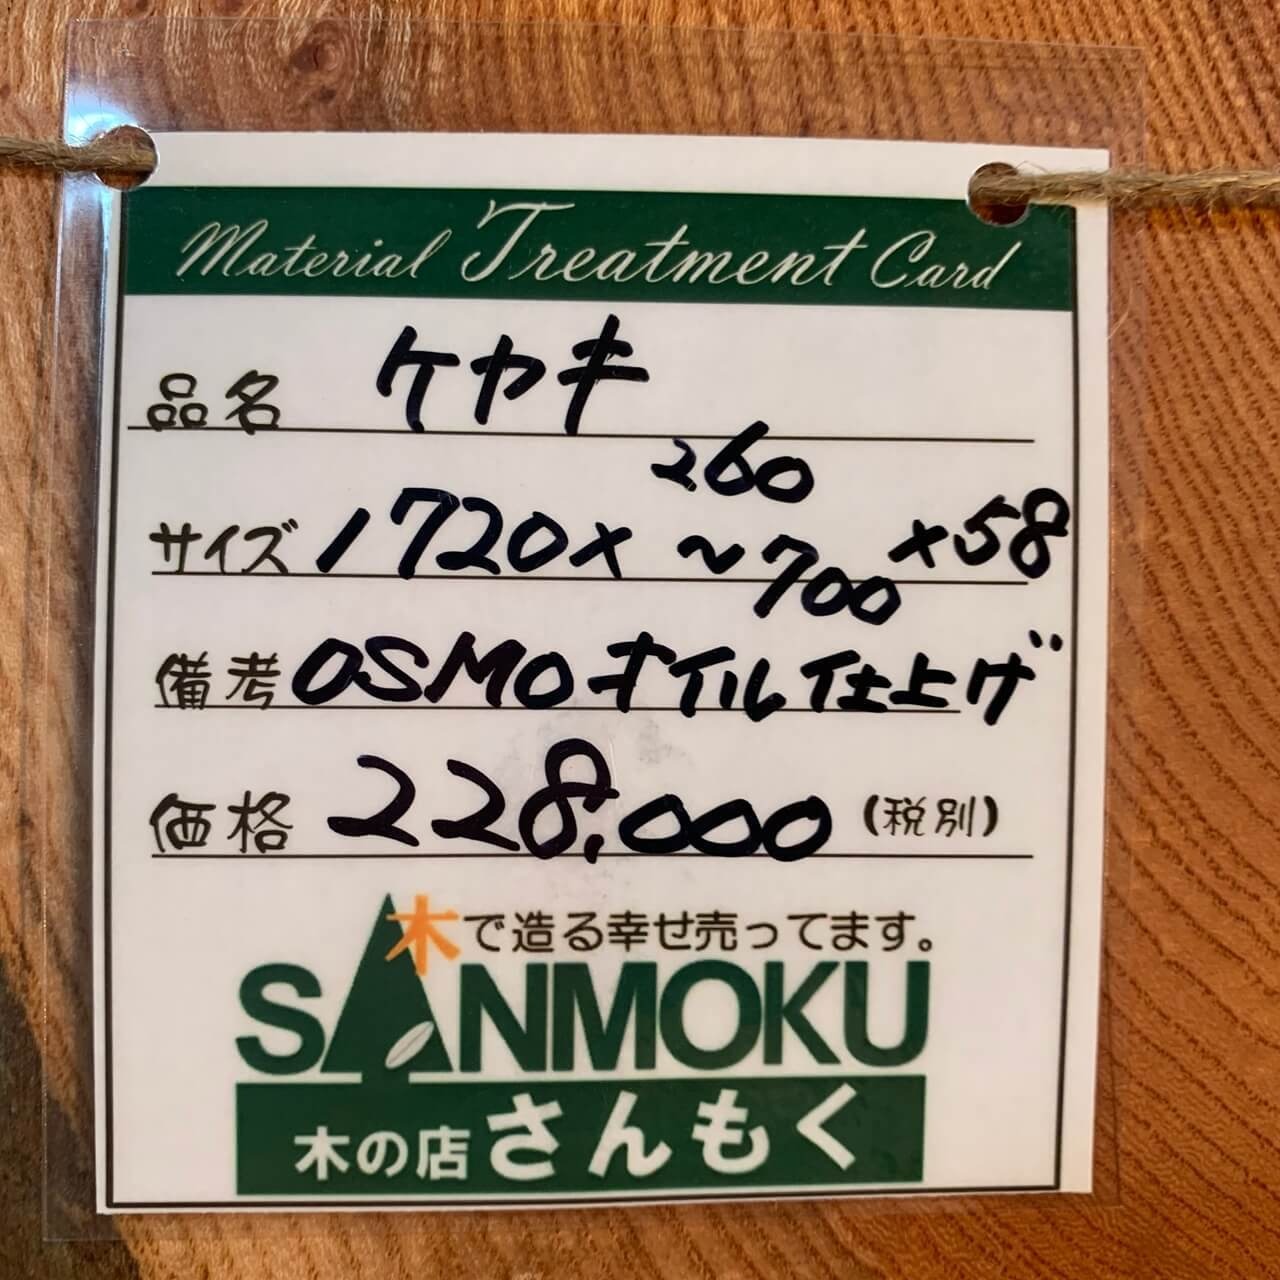 Material Treatment Card
品名 ケヤキ
サイズ 1720× 260~700 ×58
備考 OSMOオイル仕上げ
価格 228,000 (税別)
木で造る幸せ売ってます。
SANMOKU
木の店 さんもく